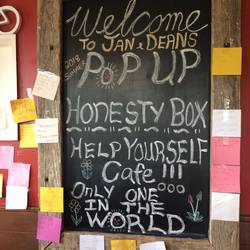 Welcome
TO JAN & DEANS
2018
SUMMER
POP UP
HONESTY BOX
HELP YOURSELF
Cafe !!!
ONLY ONE
IN THE
WORLD